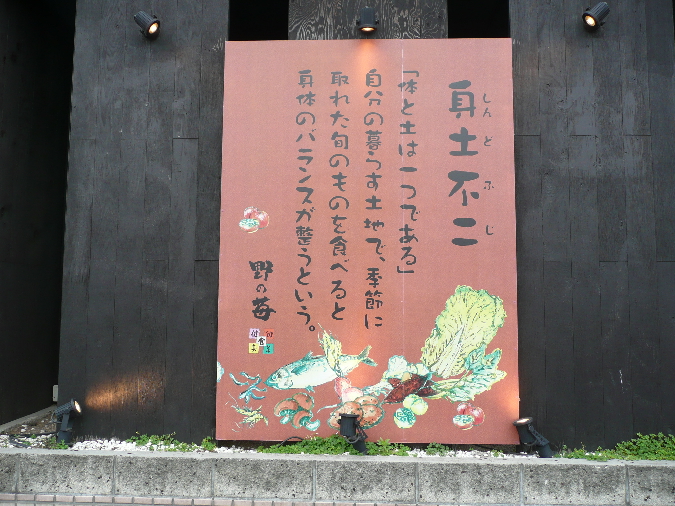 身土不二
しんどふじ
「体と土は一つである」
自分の暮らす土地で、季節に
取れた旬のものを食べると
身体のバランスが整うという。
野の苺